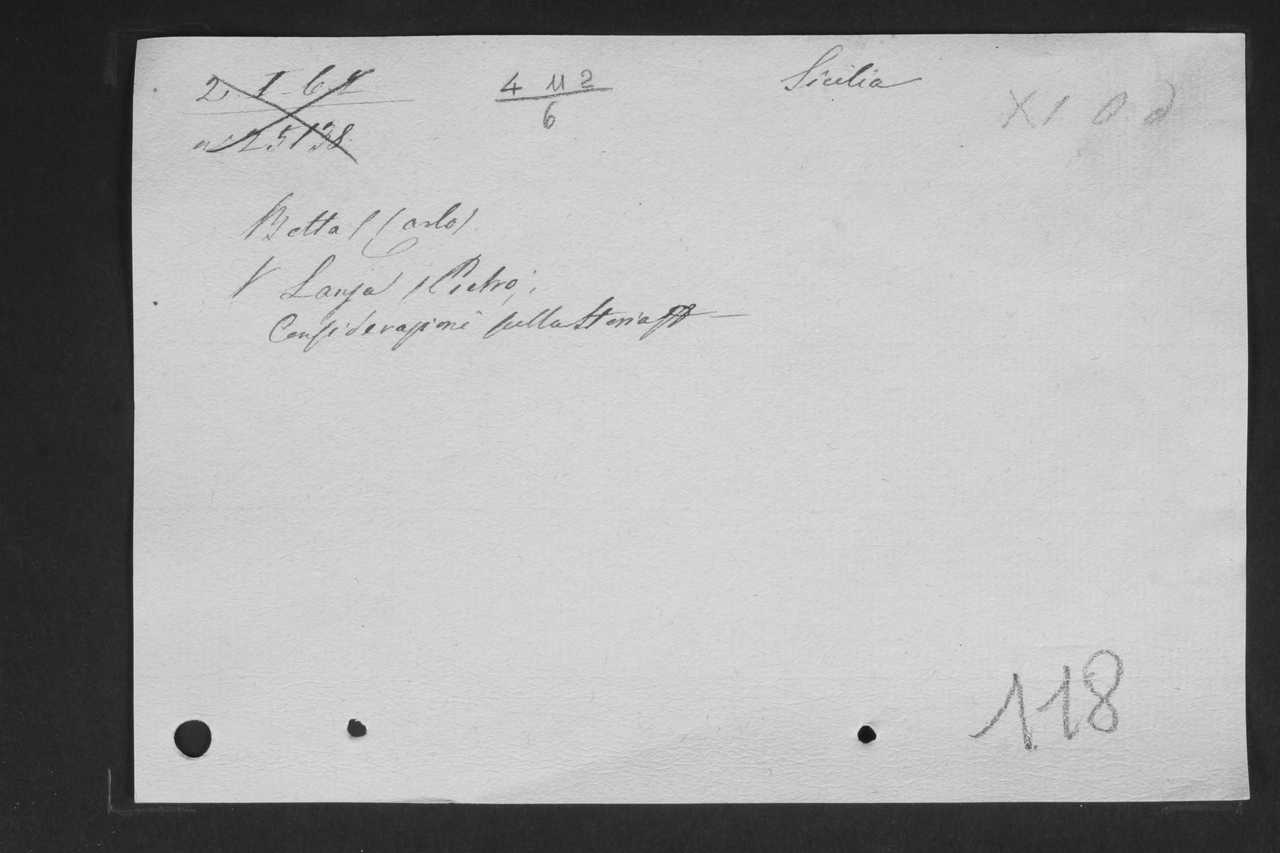 2 I 61
n: 25138
4 112
6
Sicilia
X I O d
Botta (Carlo)
V Lanza (Pietro);
Considerazioni sulla Storia
118